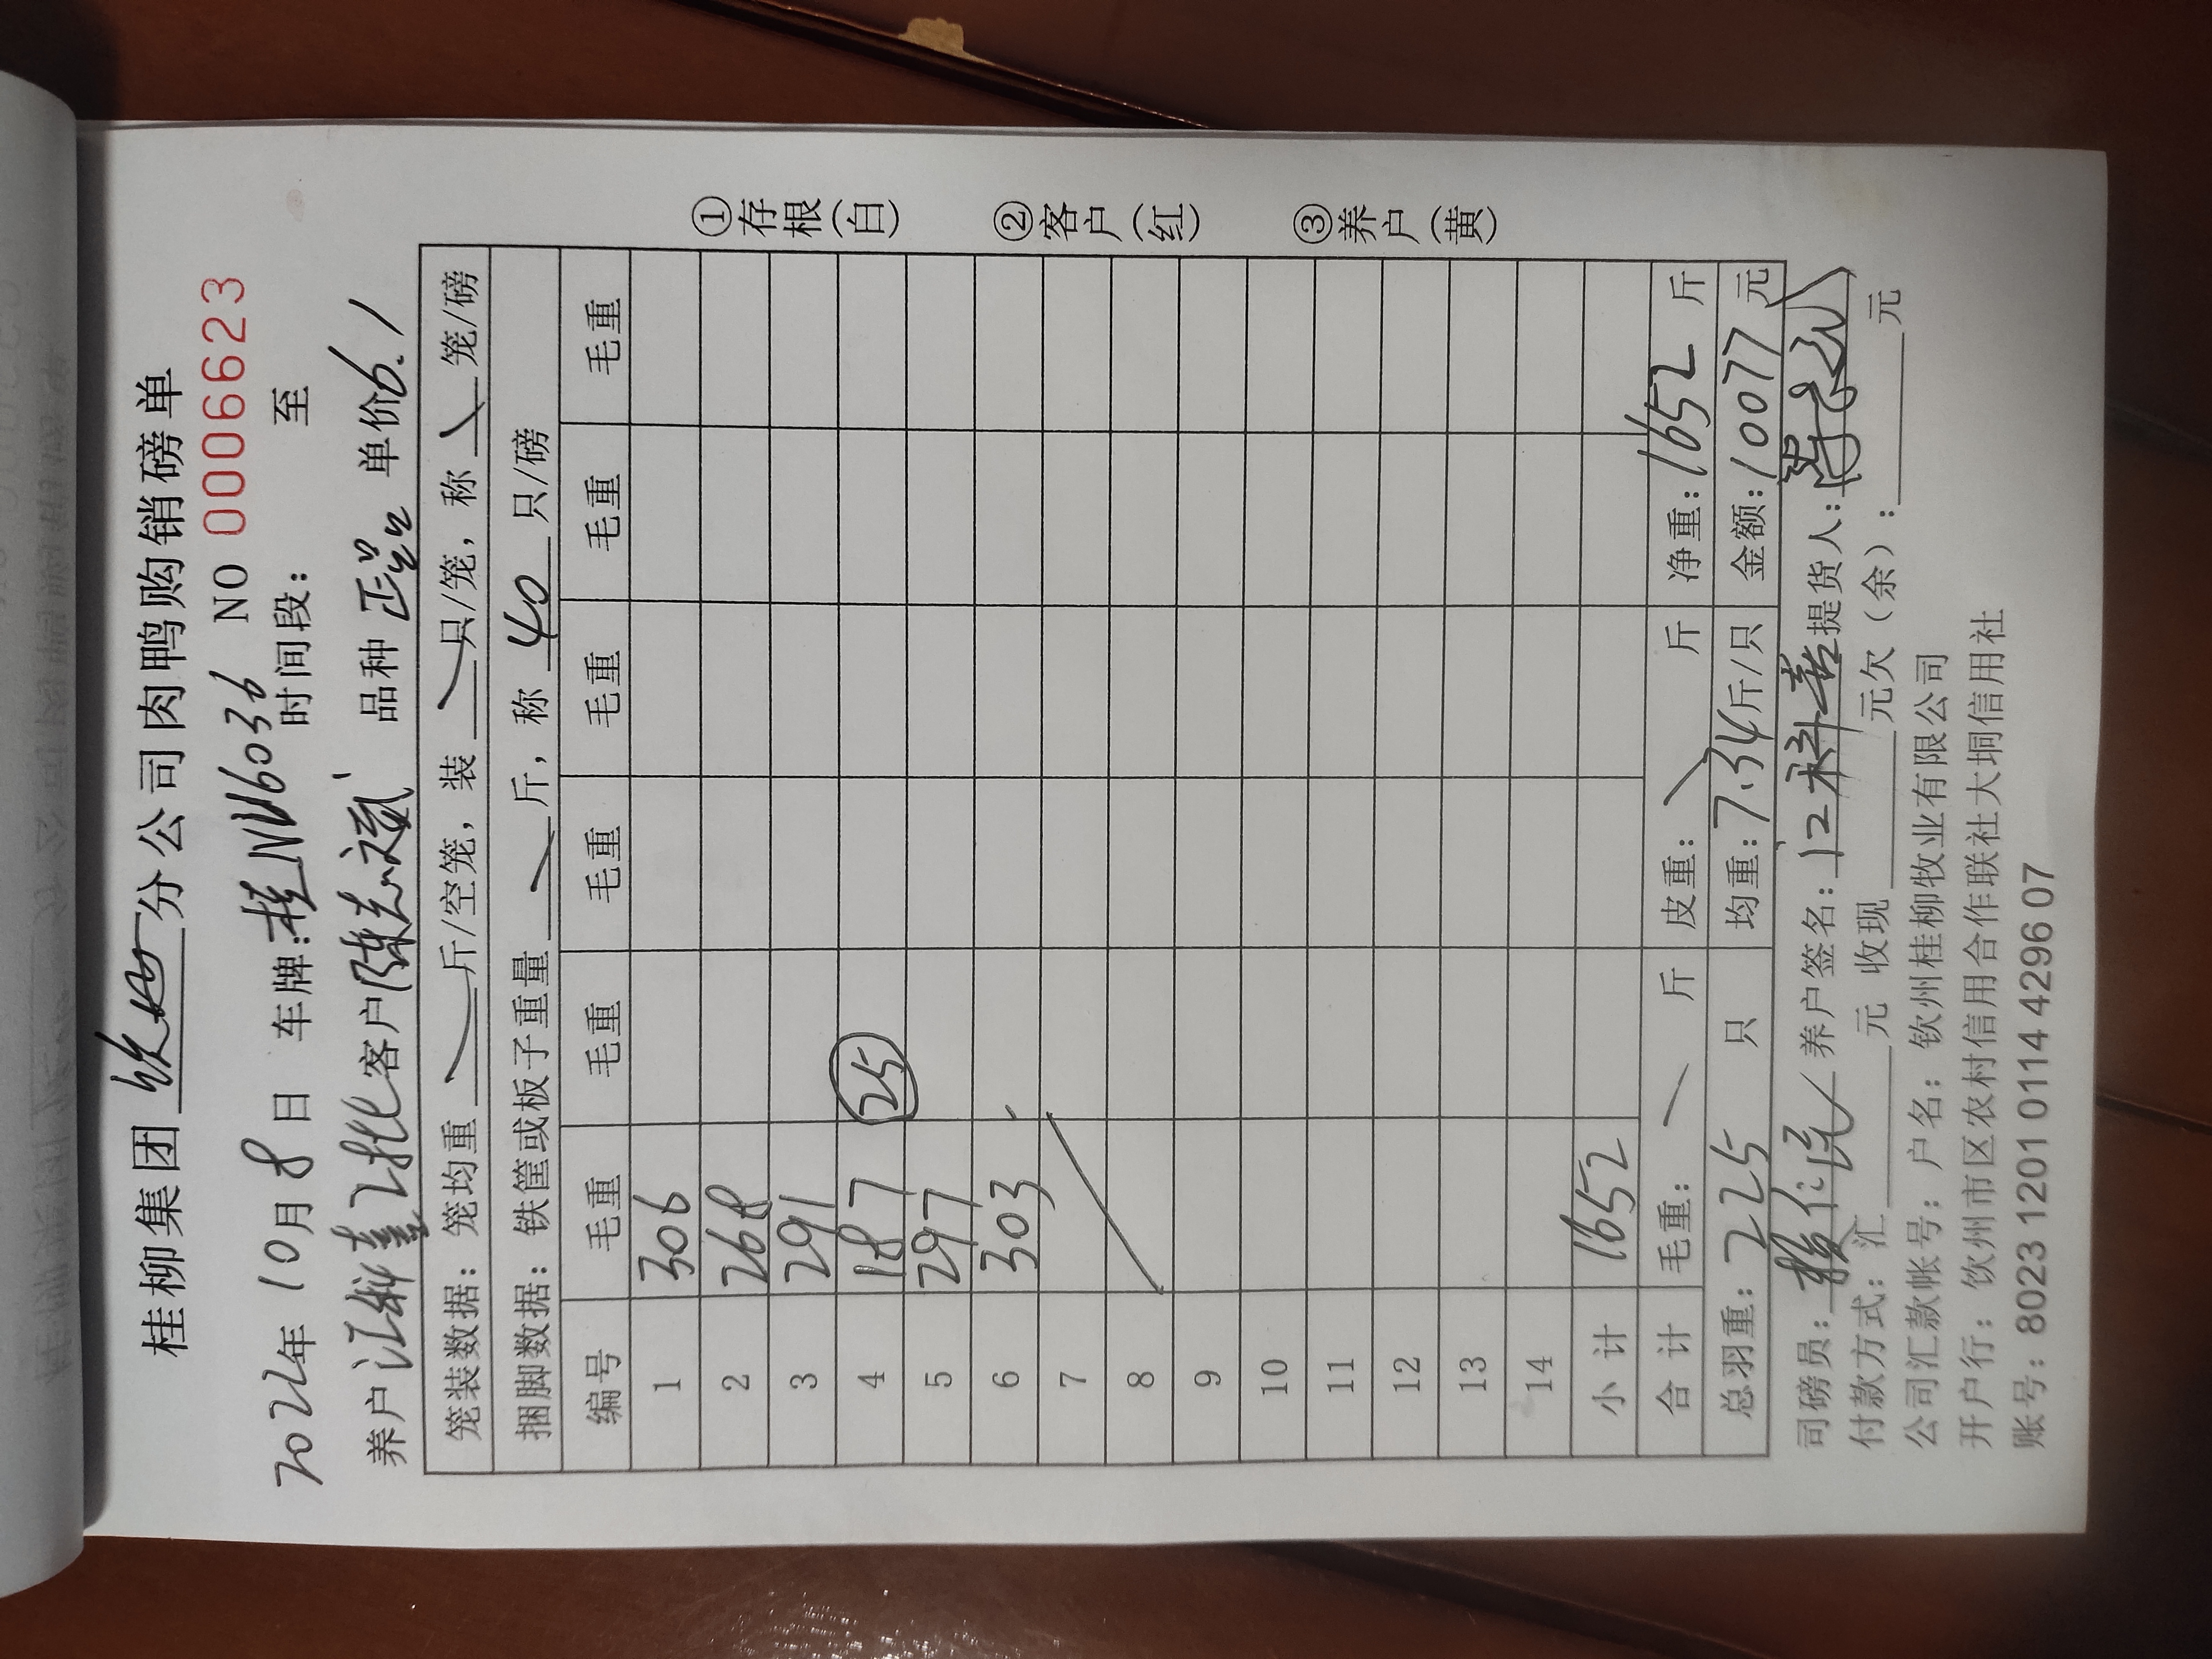 桂柳集团 钦州 分公司肉鸭购销磅单
2022年 10月 8日 车牌:桂N16036 NO 0006623
时间段: 至
养户 江科喜 客户 陈志斌 品种 正品 单价6.1
笼装数据: 笼均重 斤/空笼, 装 只/笼, 称 笼/磅
捆脚数据: 铁筐或板子重量 斤, 称 40 只/磅
编号 毛重 毛重 毛重 毛重 毛重 毛重
1 306
2 268
3 291
4 187 25
5 297
6 303
7
8
9
10
11
12
13
14
小 计 1652
合 计 毛重: 斤 皮重: 斤 净重: 1652 斤
总羽重: 225 只 均重: 7.34斤/只 金额: 10077 元
司磅员: 养户签名: 江科喜 提货人:
付款方式: 汇 元 收现 元欠(余): 元
公司汇款帐号: 户名: 钦州桂柳牧业有限公司
开户行: 钦州市区农村信用合作联社大垌信用社
账号: 8023 1201 0114 4296 07
①存根(白)
②客户(红)
③养户(黄)